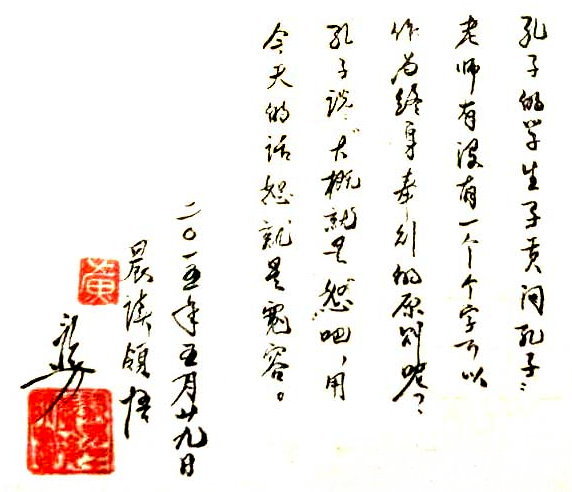 孔子的学生子贡问孔子：
老师有没有一个个字可以
作为终身奉行的原则呢？
孔子说：“大概就是‘恕’吧，用
今天的话恕就是宽容。
二〇一五年五月廿九日
晨读领悟
黄